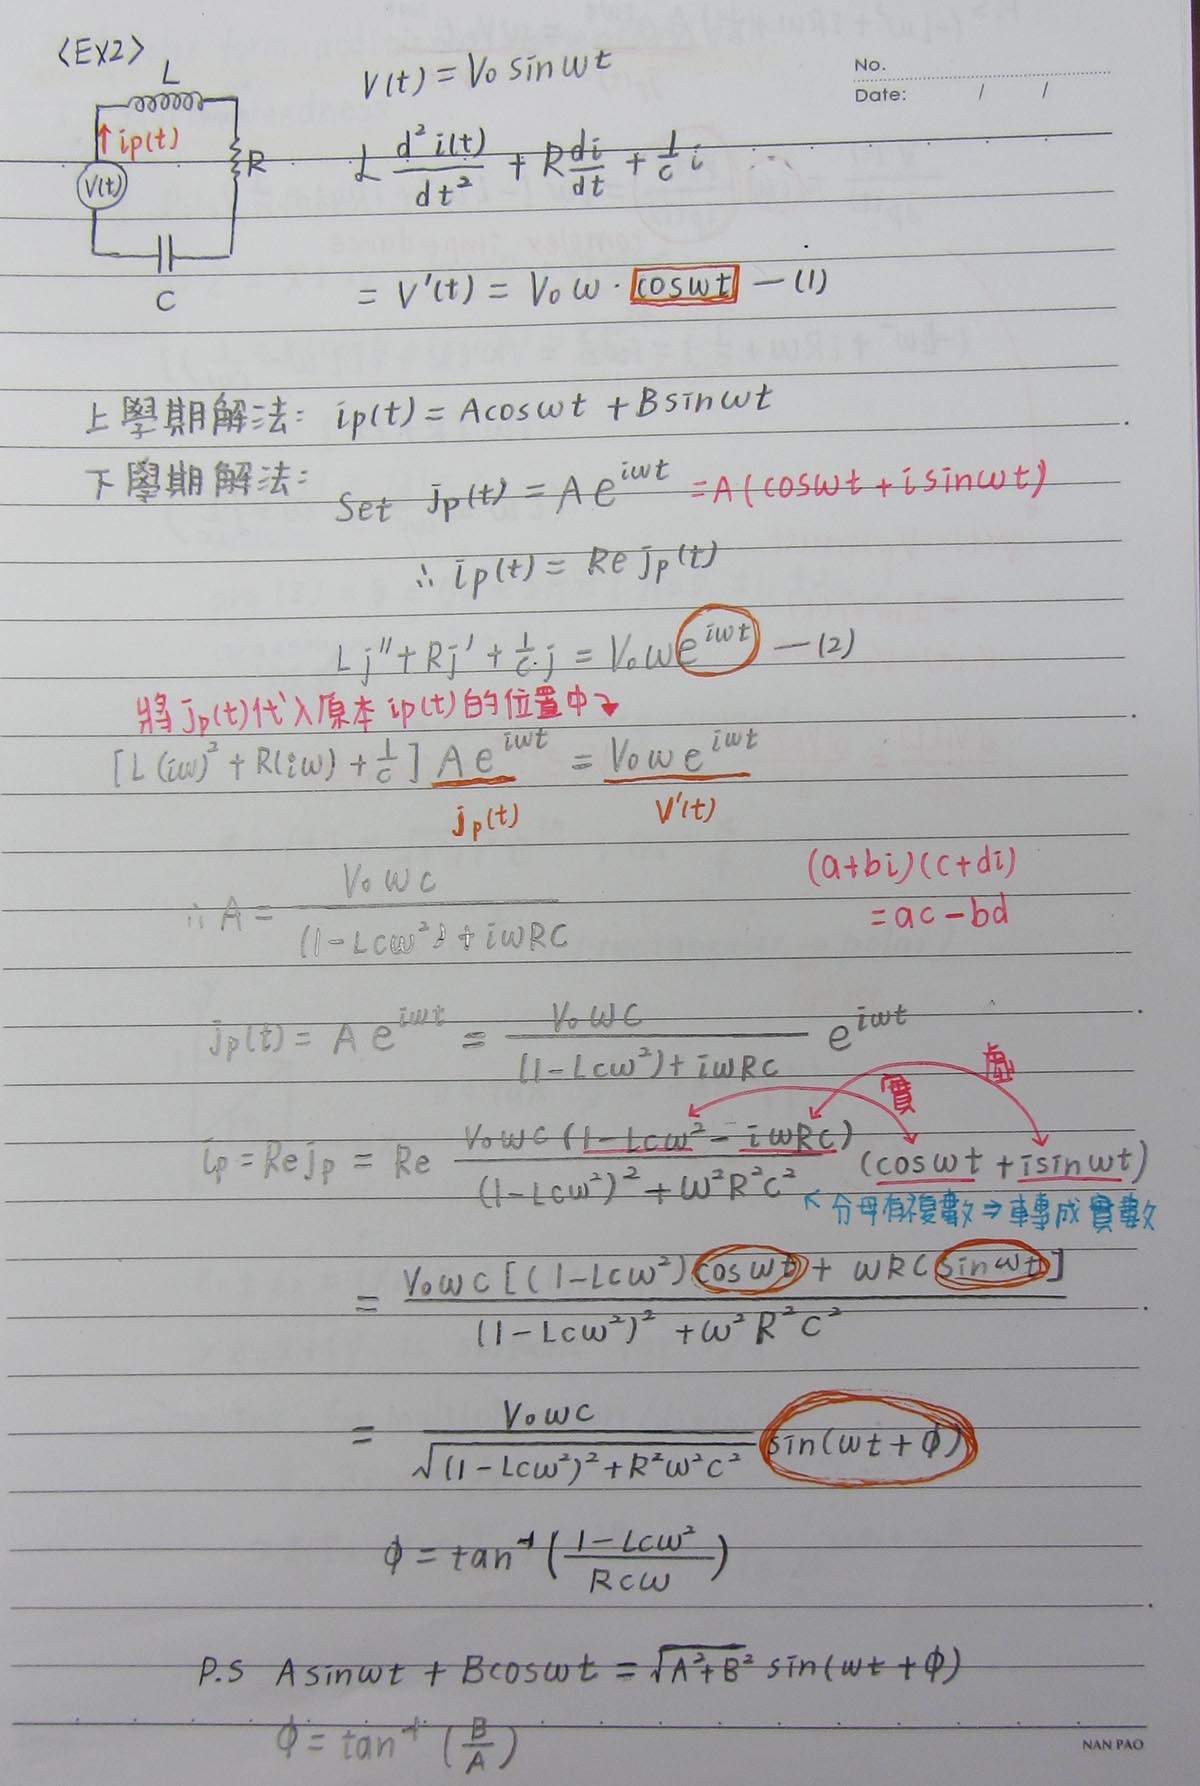 <EX2>
V(t) = V₀ sinωt
No.
Date: / /
L
ip(t)
V(t)
R
C
L d²i(t)/dt² + R di/dt + 1/C i
= V'(t) = V₀ω · cosωt —(1)
上學期解法: ip(t) = Acosωt + Bsinωt
下學期解法:
Set jp(t) = A e^{iωt} = A(cosωt + i sinωt)
∴ ip(t) = Re jp(t)
Lj'' + Rj' + 1/C j = V₀ω e^{iωt} —(2)
將 jp(t)代入原本 ip(t)的位置中↴
[L(iω)² + R(iω) + 1/C] A e^{iωt} = V₀ω e^{iωt}
jp(t) V'(t)
(a+bi)(c+di)
= ac-bd
∴ A = V₀ωC / ((1-LCω²) + iωRC)
jp(t) = A e^{iωt} = V₀ωC / ((1-LCω²) + iωRC) e^{iωt}
實 虛
ip = Re jp = Re V₀ωC(1-LCω² - iωRC) / ((1-LCω²)² + ω²R²C²) (cosωt + isinωt)
↖ 分母有複數 ⇒ 轉成實數
= V₀ωC[(1-LCω²)cosωt + ωRC sinωt] / ((1-LCω²)² + ω²R²C²)
= V₀ωC / √((1-LCω²)² + R²ω²C²) sin(ωt + ϕ)
ϕ = tan⁻¹((1-LCω²)/(RCω))
P.S Asinωt + Bcosωt = √(A²+B²) sin(ωt + ϕ)
ϕ = tan⁻¹(B/A)
NAN PAO